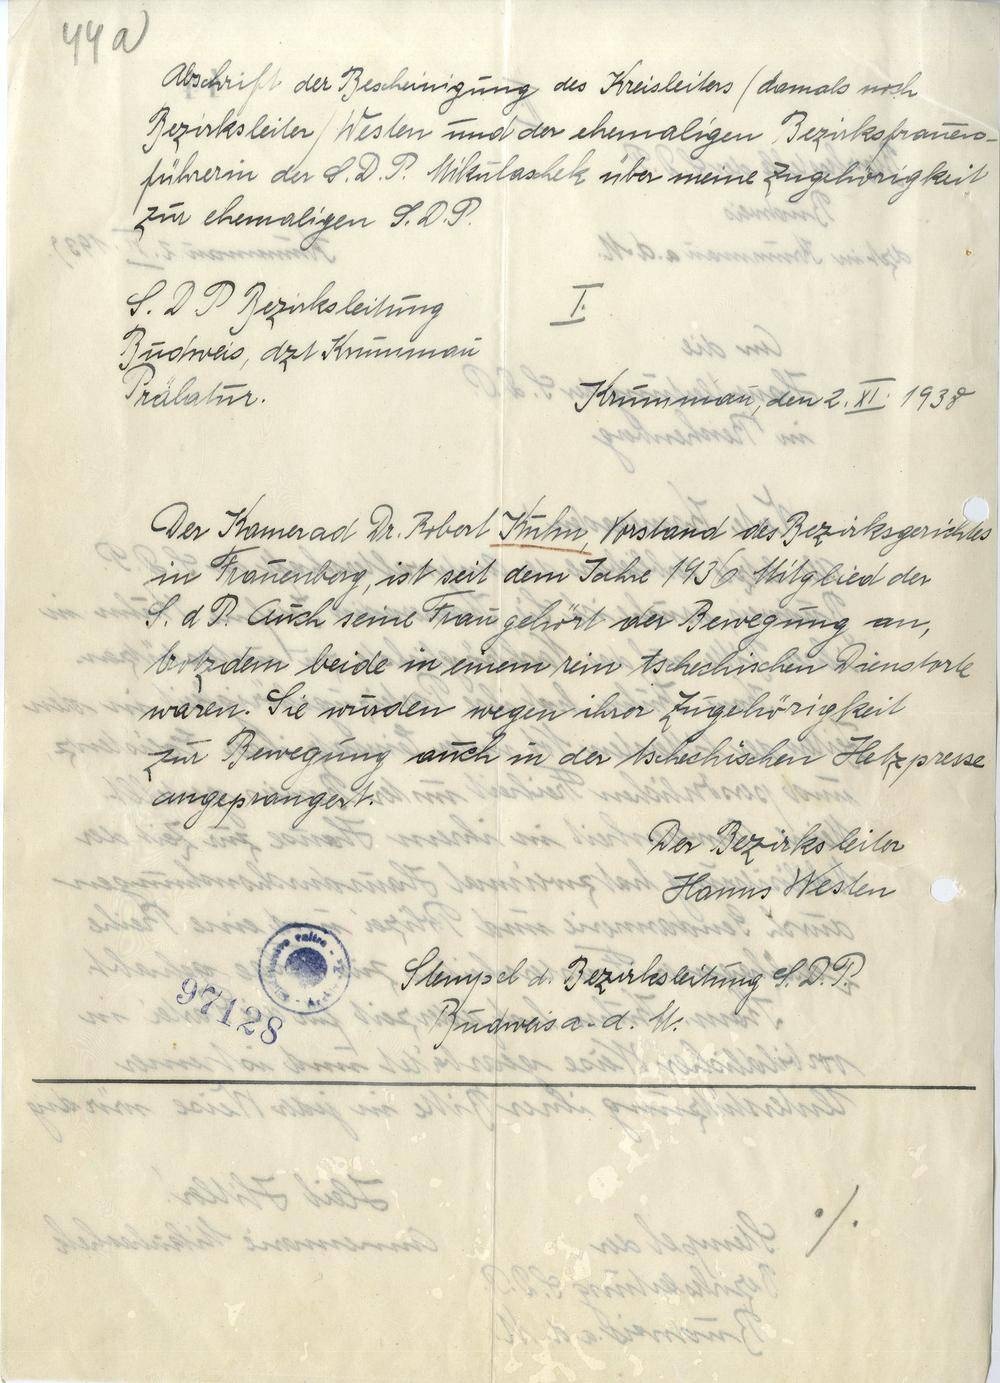 44 a)
Abschrift der Bescheinigung des Kreisleiters / damals noch
Bezirksleiter / Westen und der ehemaligen Bezirksfrauen-
führerin der S.D.P. Mikulaschek über meine Zugehörigkeit
zur ehemaligen S.D.P.
I.
S. D P Bezirksleitung
Budweis, dzt Krummau
Prälatur.
Krummau, den 2. XI. 1938
Der Kamerad Dr. Robert Kuhn, Vorstand des Bezirksgerichtes
in Frauenberg, ist seit dem Jahre 1936 Mitglied der
S. d P. Auch seine Frau gehört der Bewegung an,
trotzdem beide in einem rein tschechischen Dienstorte
waren. Sie wurden wegen ihrer Zugehörigkeit
zur Bewegung auch in der tschechischen Hetzpresse
angeprangert.
Der Bezirksleiter
Hanns Westen
Stempel d. Bezirksleitung S.D.P.
Budweis a. d. M.
97128
./.